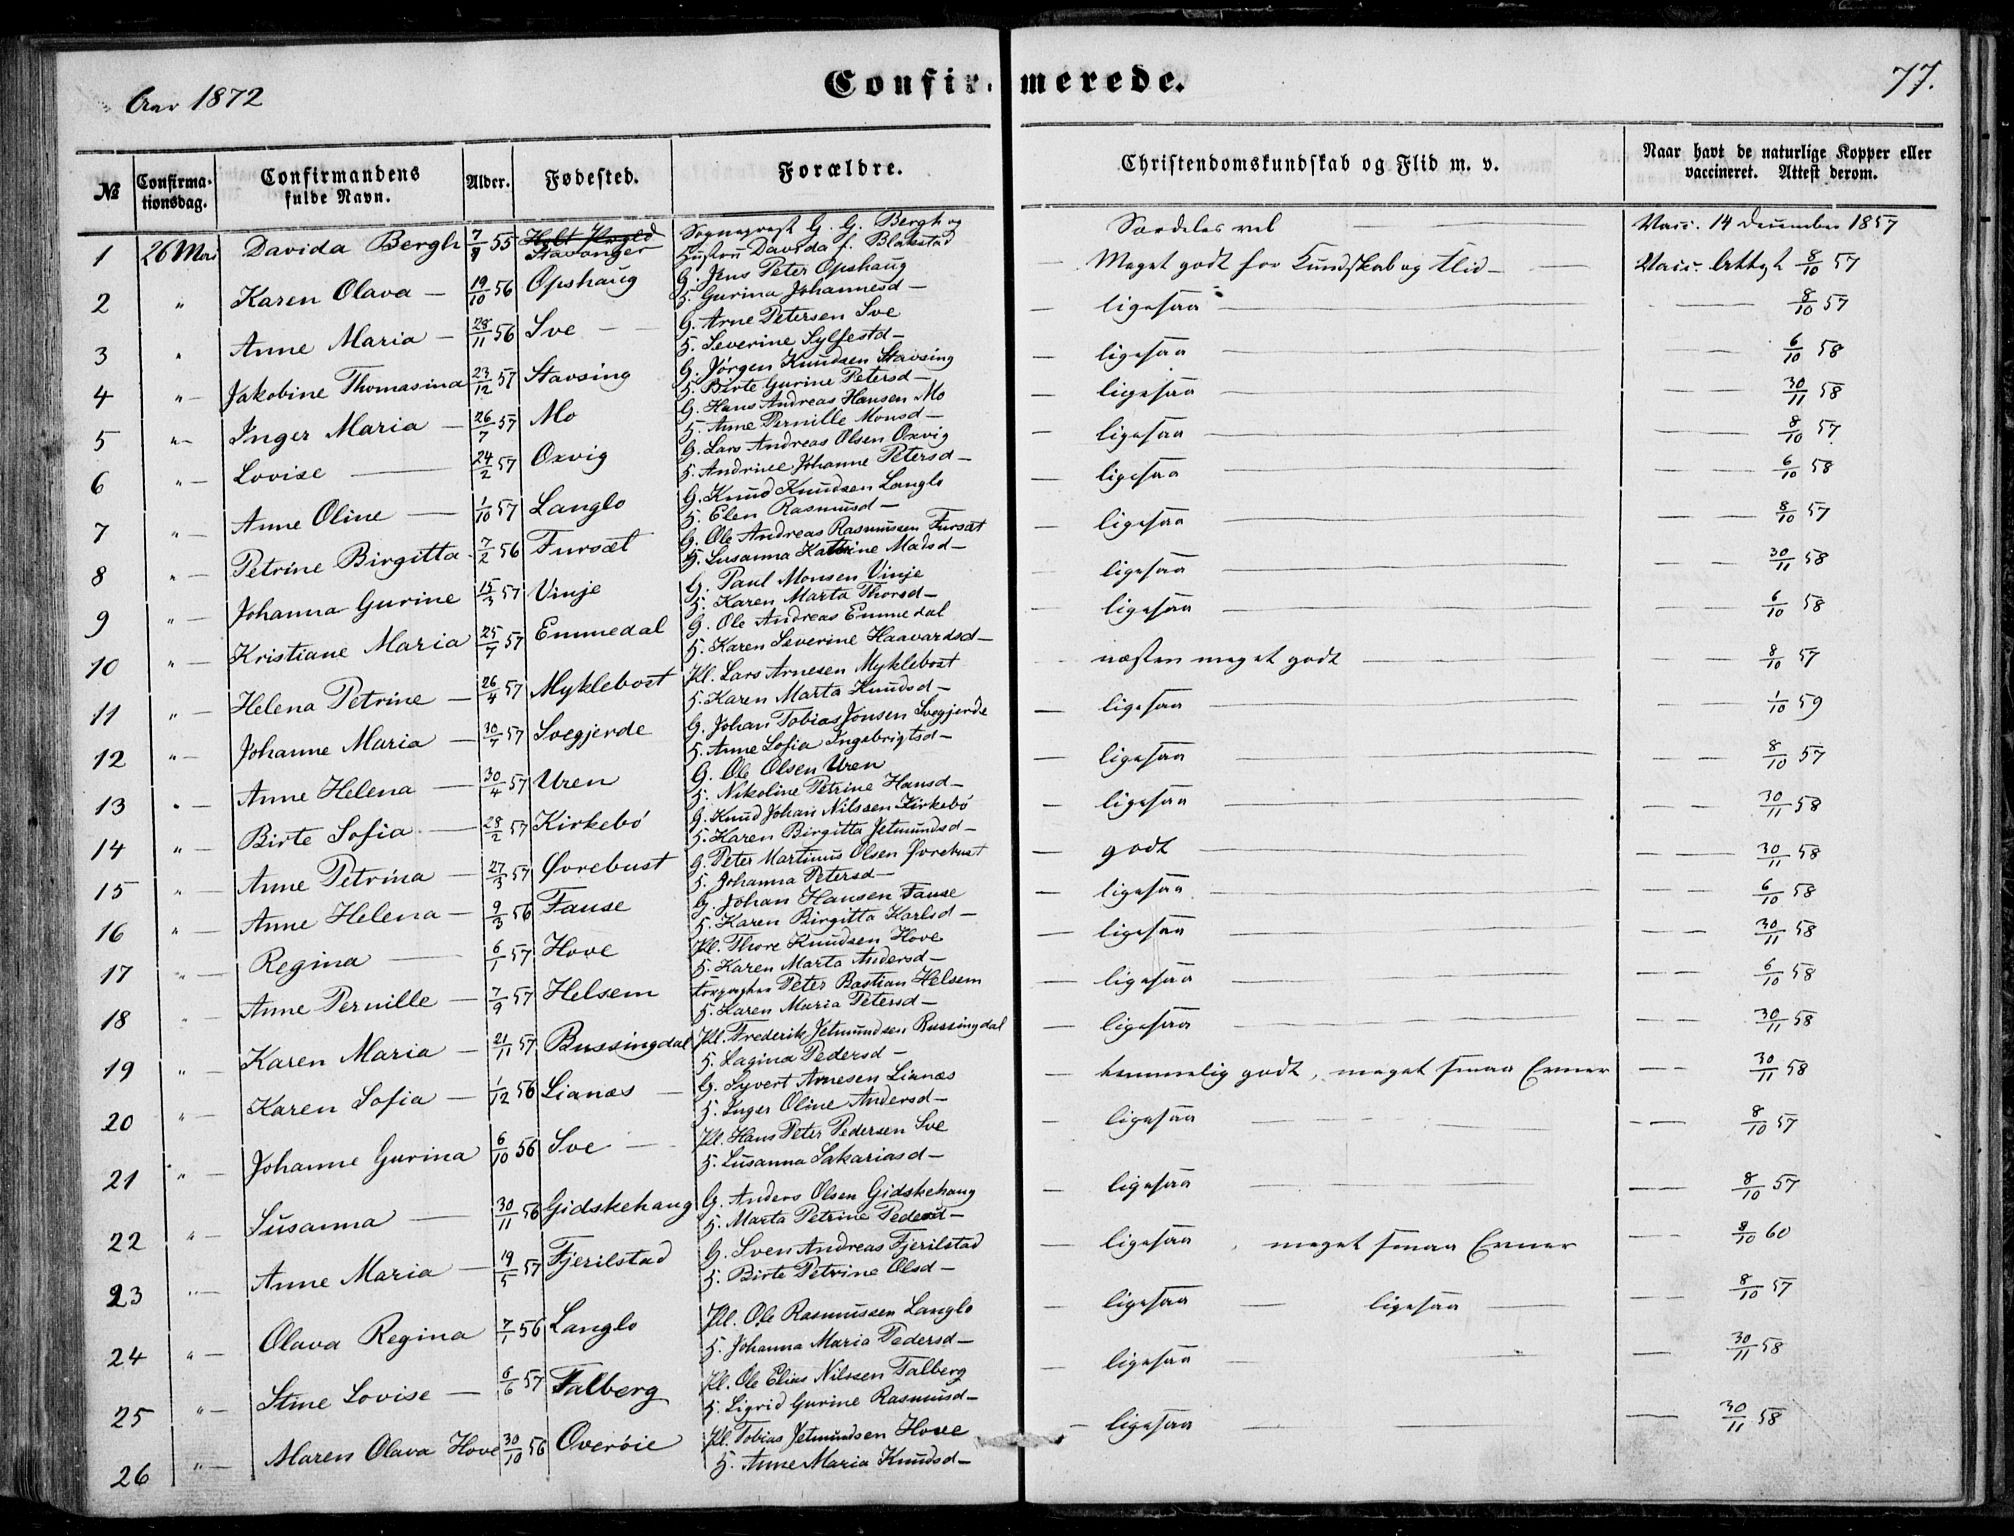 Aar 1872
Confirmerede.
77.
№
Confirmationsdag.
Confirmandens fulde Navn.
Alder.
Fødested.
Forældre.
Christendomskundskab og Flid m. v.
Naar havt de naturlige Kopper eller vaccineret. Attest derom.
1 26 Mai Davida Bergh 7/8 55 Holt Prgld Stavanger Sogneprest G. G. Bergh og Hustru Davida f. Blakstad Særdeles vel Vacc. 14 December 1857
2 " Karen Olava 19/10 56 Opshaug G. Jens Peter Opshaug H. Gurina Johannesd Meget godt for Kundskab og Flid Vacc. Attest 8/10 57
3 " Anne Maria 28/11 56 Sve G. Arne Petersen Sve H. Severine Sylfestd ligesaa 8/10 57
4 " Jakobine Thomasina 23/12 57 Stavsing G. Jørgen Knudsen Stavsing H. Birte Gurine Petersd ligesaa 6/10 58
5 " Inger Maria 26/7 57 Mo G. Hans Andreas Hansen Mo H. Anne Pernille Monsd ligesaa 30/11 58
6 " Lovise 24/2 57 Oxvig G. Lars Andreas Olsen Oxvig H. Andrine Johanne Petersd ligesaa 8/10 57
7 " Anne Oline 1/10 57 Langlo G. Knud Knudsen Langlo H. Elen Rasmusd ligesaa 6/10 58
8 " Petrine Birgitta 7/2 56 Fursæt G. Ole Andreas Rasmussen Fursæt H. Susanna Katrine Madsd ligesaa 8/10 57
9 " Johanna Gurine 15/3 57 Vinje G. Paul Monsen Vinje H. Karen Marta Thorsd ligesaa 30/11 58
10 " Kristiane Maria 25/7 57 Emmedal G. Ole Andreas Emmedal H. Karen Severine Haavardsd ligesaa 6/10 58
11 " Helena Petrine 26/4 57 Myklebost Pl. Lars Arnesen Myklebost H. Karen Marta Knudsd næsten meget godt 8/10 57
12 " Johanne Maria 30/7 57 Svegjerde G. Johan Tobias Jonsen Svegjerde H. Anne Sofia Ingebrigtsd ligesaa 1/10 59
13 " Anne Helena 30/4 57 Uren G. Ole Olsen Uren H. Nikoline Petrine Hansd ligesaa 8/10 57
14 " Birte Sofia 28/2 57 Kirkebø G. Knud Johan Nilssen Kirkebø H. Karen Birgitta Jetmundsd ligesaa 30/11 58
15 " Anne Petrina 27/3 57 Øvrebust G. Peter Martinus Olsen Øvrebust H. Johanna Petersd godt 30/11 58
16 " Anne Helena 9/3 56 Fause G. Johan Hansen Fause H. Karen Birgitta Karlsd ligesaa 6/10 58
17 " Regina 6/1 57 Hove Pl. Thore Knudsen Hove H. Karen Marta Andersd ligesaa 30/11 58
18 " Anne Pernille 7/9 57 Helsem Peter Bastian Helsem H. Karen Maria Petersd ligesaa 6/10 58
19 " Karen Maria 21/11 57 Bussingdal Pl. Frederik Jetmundsen Russingdal H. Lagina Pedersd ligesaa 30/11 58
20 " Karen Sofia 1/12 56 Lianæs G. Syvert Arnesen Lianæs H. Inger Oline Andersd temmelig godt, meget smaa Evner 30/11 58
21 " Johanne Gurina 6/10 56 Sve Pl. Hans Peter Pedersen Sve H. Susanna Sakariasd ligesaa 8/10 57
22 " Susanna 30/11 56 Gidskehaug G. Anders Olsen Gidskehaug H. Marta Petrine Pedersd ligesaa 8/10 57
23 " Anne Maria 19/5 57 Fjerilstad G. Sven Andreas Fjerilstad H. Birte Petrine Olsd ligesaa, meget smaa Evner 8/10 60
24 " Olava Regina 7/1 56 Langlo Pl. Ole Rasmussen Langlo H. Johanna Maria Pedersd ligesaa ligesaa 8/10 57
25 " Stine Lovise 6/6 57 Falberg Pl. Ole Elias Nilssen Falberg H. Sigrid Gurine Rasmusd ligesaa 30/11 58
26 " Maren Olava Hove 30/10 56 Overøie Pl. Tobias Jetmundsen Hove H. Anne Maria Knudsd ligesaa 30/11 58